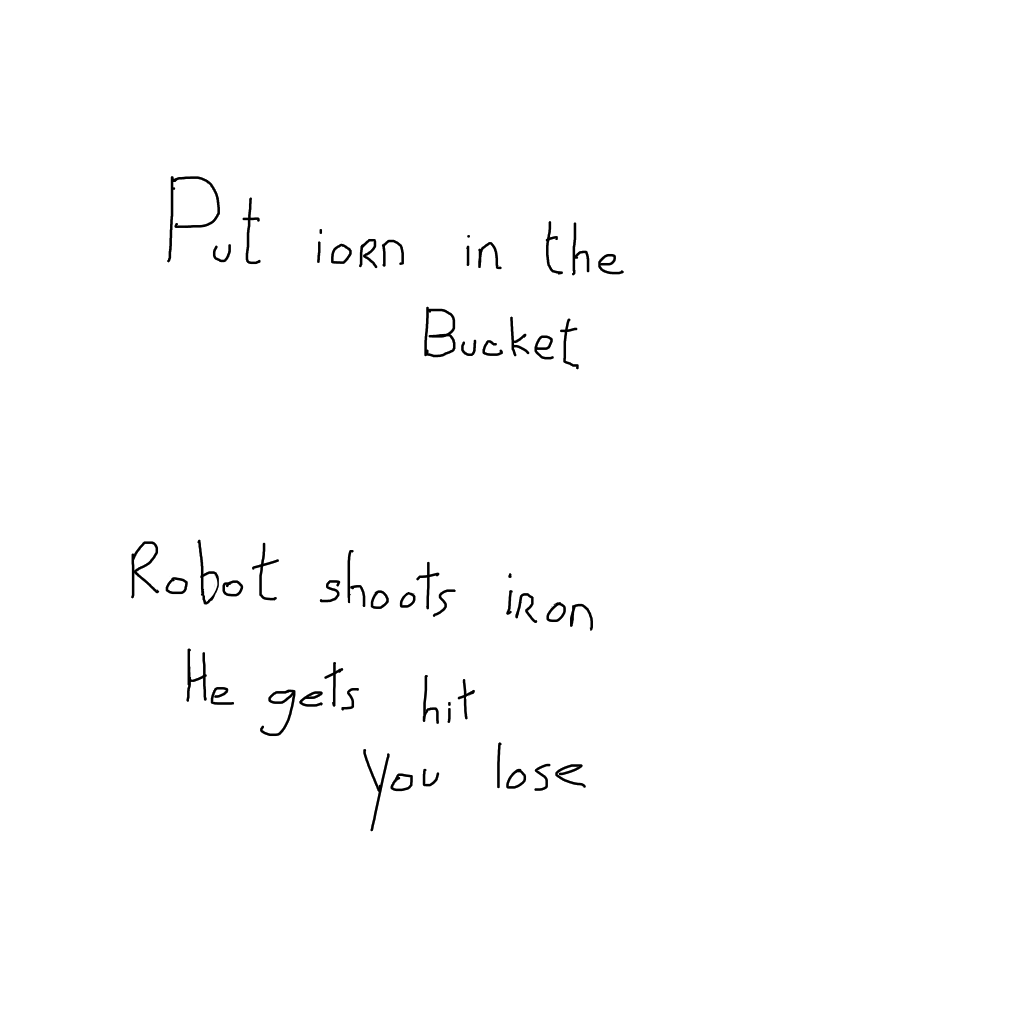 Put iorn in the
Bucket
Robot shoots iron
He gets hit
You lose